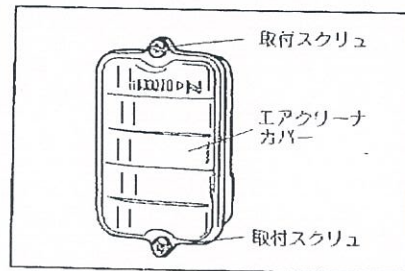 取付スクリュ
エアクリーナ
カバー
取付スクリュ